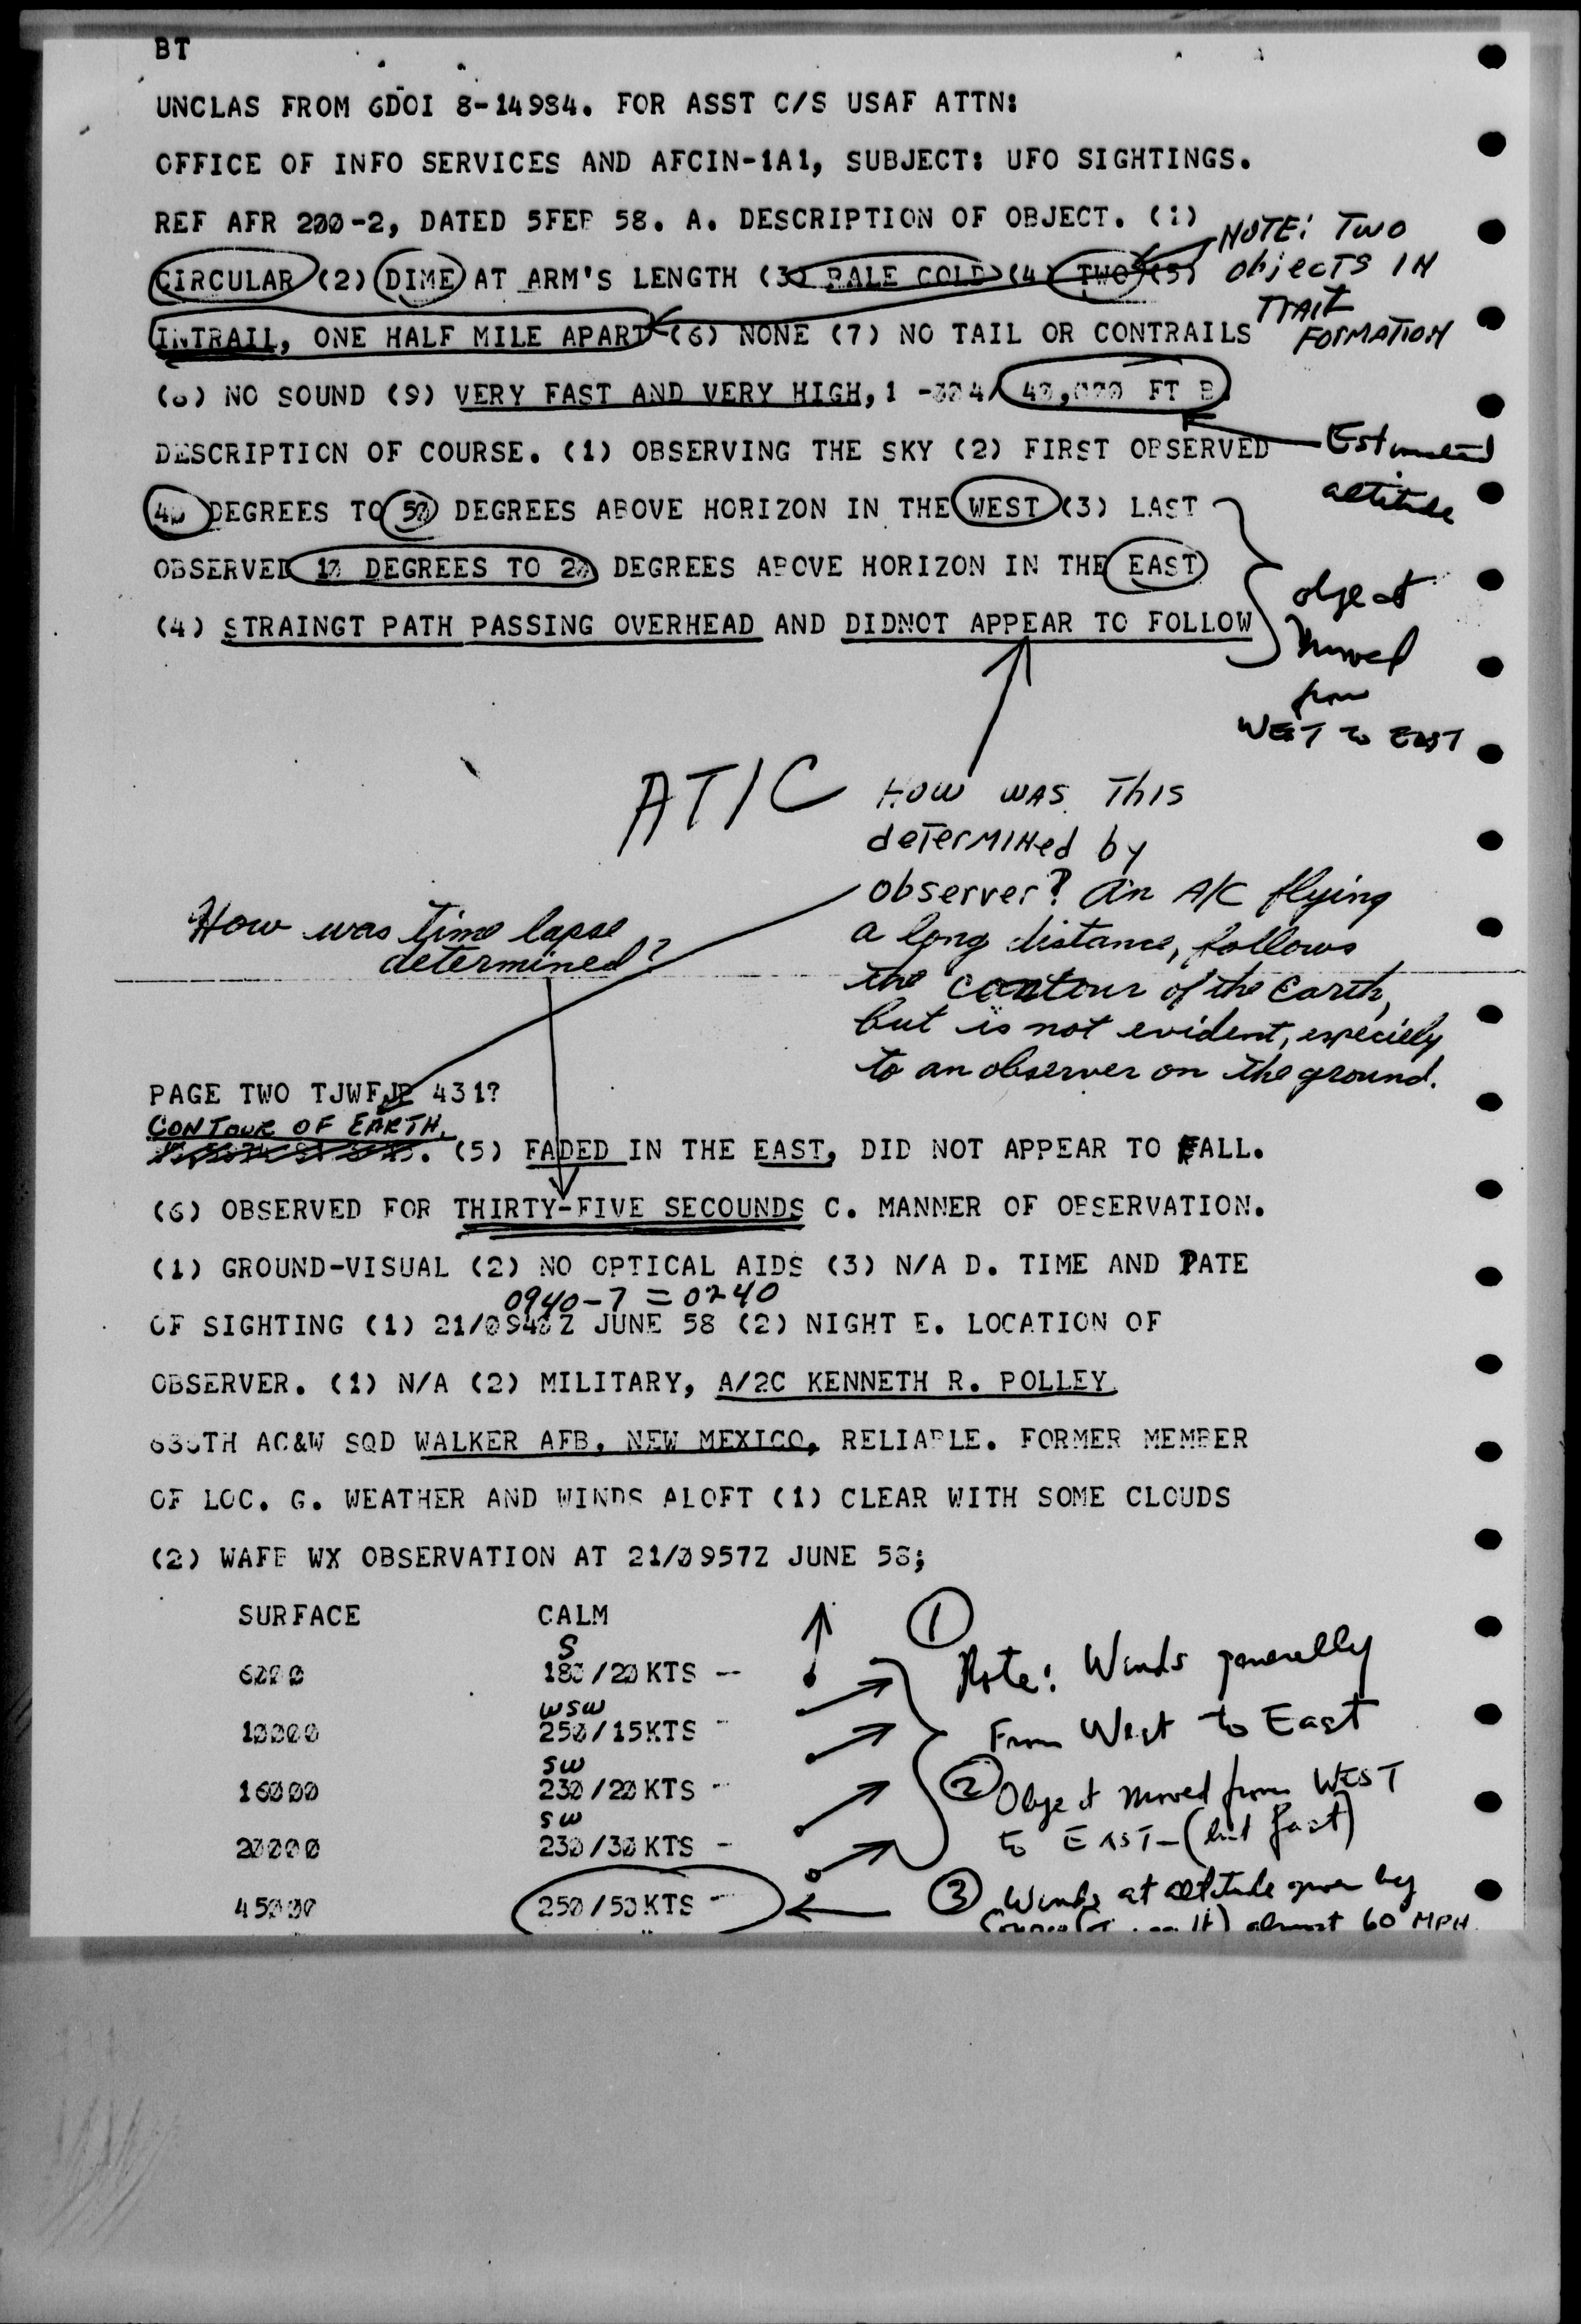 BT
UNCLAS FROM GDOI 8-14984. FOR ASST C/S USAF ATTN:
OFFICE OF INFO SERVICES AND AFCIN-1A1, SUBJECT: UFO SIGHTINGS.
REF AFR 200-2, DATED 5FEB 58. A. DESCRIPTION OF OBJECT. (1)
NOTE: TWO
objects IN
TRAIL
FORMATION
CIRCULAR (2) DIME AT ARM'S LENGTH (3) PALE GOLD (4) TWO (5)
INTRAIL, ONE HALF MILE APART (6) NONE (7) NO TAIL OR CONTRAILS
(8) NO SOUND (9) VERY FAST AND VERY HIGH, 40,000 FT B.
Estimated
altitude
DESCRIPTION OF COURSE. (1) OBSERVING THE SKY (2) FIRST OBSERVED
40 DEGREES TO 50 DEGREES ABOVE HORIZON IN THE WEST (3) LAST
OBSERVED 10 DEGREES TO 20 DEGREES ABOVE HORIZON IN THE EAST
(4) STRAINGT PATH PASSING OVERHEAD AND DIDNOT APPEAR TO FOLLOW
object
moved
from
WEST to EAST
ATIC
HOW WAS THIS
determined by
observer? An A/C flying
a long distance, follows
the contour of the Earth,
but is not evident, especielly
to an observer on the ground.
How was time lapse
determined?
PAGE TWO TJWFJP 431?
CONTOUR OF EARTH.
(5) FADED IN THE EAST, DID NOT APPEAR TO FALL.
(6) OBSERVED FOR THIRTY-FIVE SECOUNDS C. MANNER OF OBSERVATION.
(1) GROUND-VISUAL (2) NO OPTICAL AIDS (3) N/A D. TIME AND DATE
0940-7 = 0240
OF SIGHTING (1) 21/0940Z JUNE 58 (2) NIGHT E. LOCATION OF
OBSERVER. (1) N/A (2) MILITARY, A/2C KENNETH R. POLLEY
AC&W SQD WALKER AFB, NEW MEXICO, RELIABLE. FORMER MEMBER
OF LOC. G. WEATHER AND WINDS ALOFT (1) CLEAR WITH SOME CLOUDS
(2) WAFB WX OBSERVATION AT 21/0957Z JUNE 58;
SURFACE CALM
S
6000 180/20KTS --
WSW
10000 250/15KTS -
SW
16000 230/20KTS --
SW
20000 230/30KTS -
45000 250/50KTS -
1 Note: Winds generally
From West to East
2 Object moved from WEST
to EAST - (but fast)
3 Winds at altitude given by
almost 60 MPH.